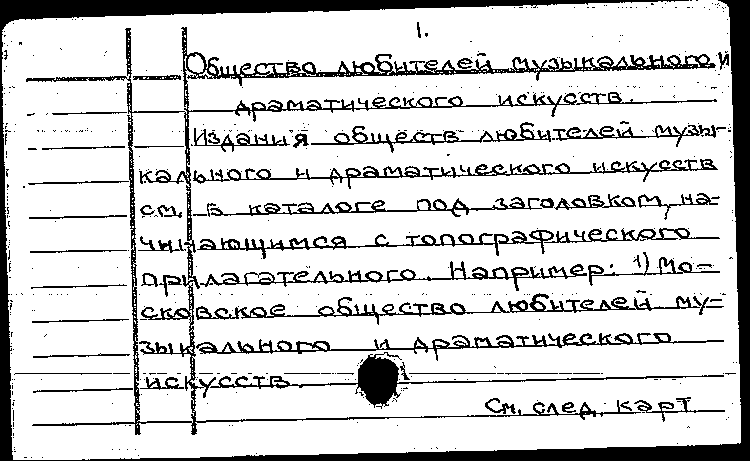 1.
Общество любителей музыкального и
драматического искусств.
Издания обществ любителей музы-
кального и драматического искусств
см. в каталоге под заголовком, на-
чинающимся с топографического
прилагательного. Например: 1) Мо-
сковское общество любителей му-
зыкального и драматического
искусств.
См. след. карт